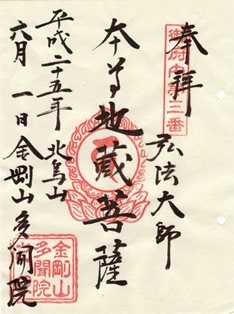 奉拝
御府内第三番
弘法大師
本尊地蔵菩薩
平成二十五年
北烏山
六月一日
金剛山多聞院
金剛山
多聞院